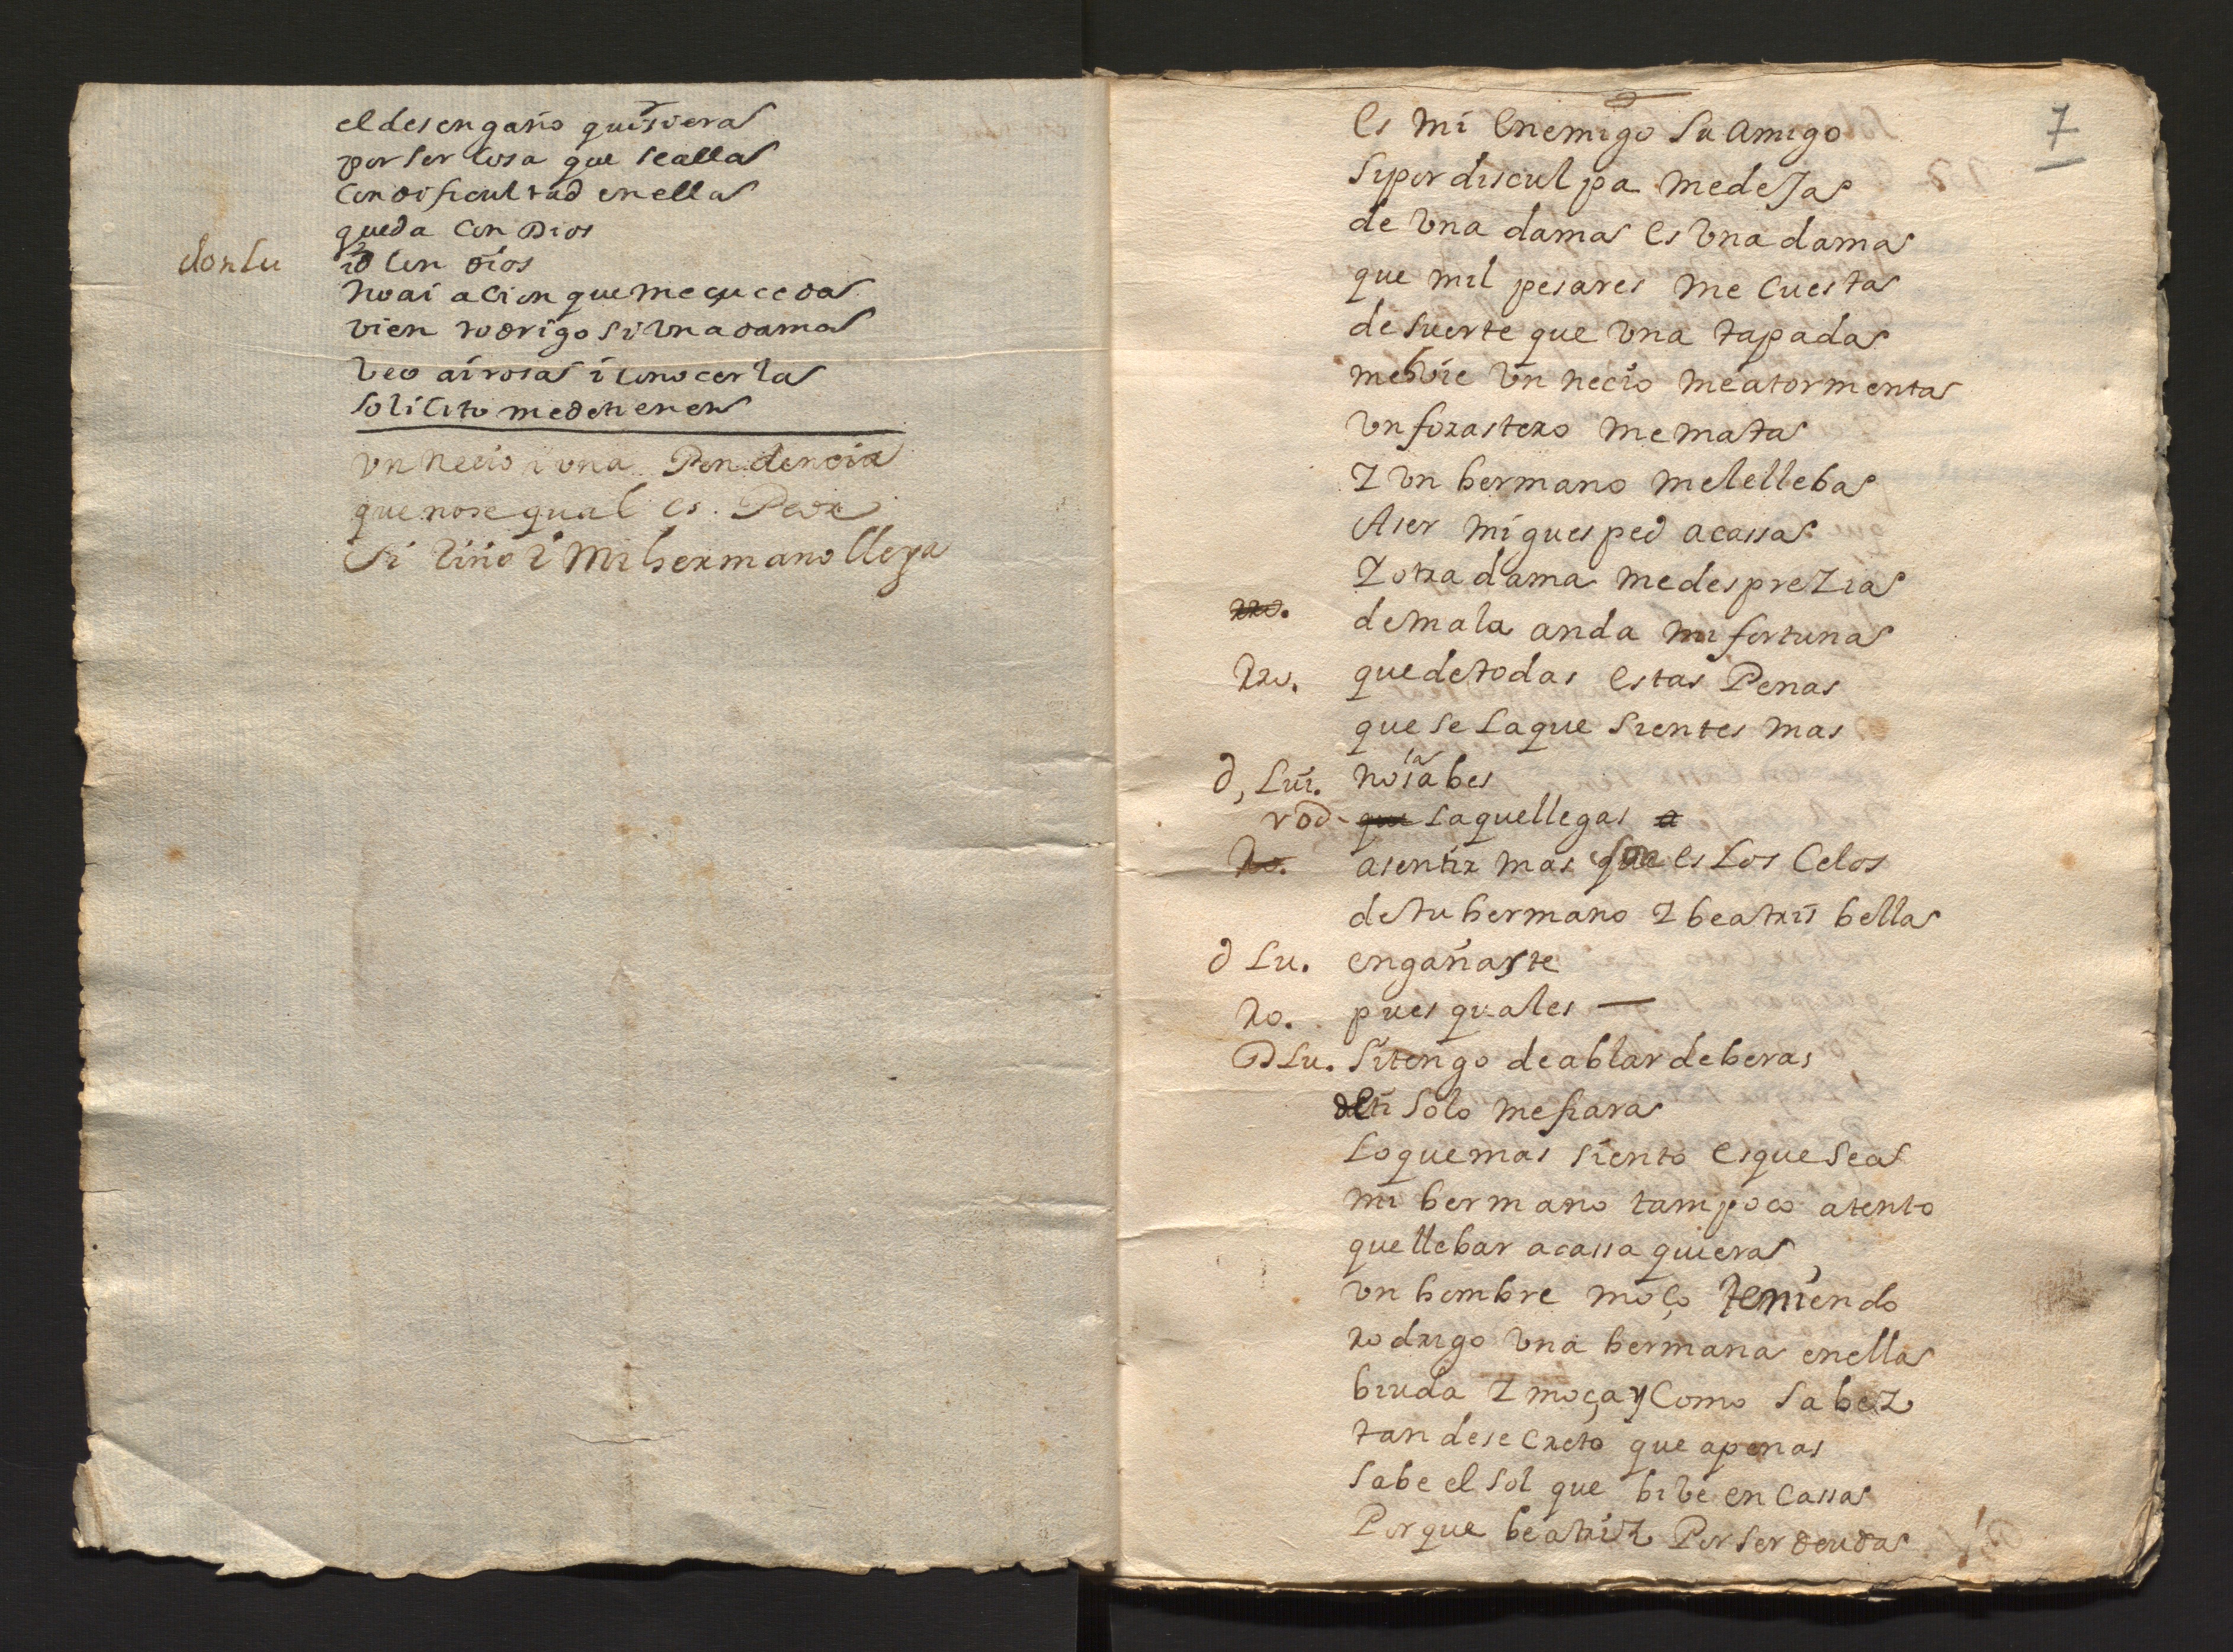 el desengaño quisiera
por ser cosa que se alla
con dificultad en ella
queda con Dios
donlu id con dios
no ai acion que me suceda
vien rodrigo si vna dama
veo airosa i conocerla
solicito me detienen
vn necio i vna Pendencia
que no se qual es Peor
si riño i mi hermano llega
7
es mi enemigo su amigo
si por disculpa me deja
de vna dama es vna dama
que mil pesares me cuesta
de suerte que vna tapada
me vie vn necio me atormenta
vn forastero me mata
I vn hermano me le lleba
A ser mi guesped a cassa
I otra dama me desprezia
de mala anda mi fortuna
Ro. que de todas estas Penas
que se la que sientes mas
d, Lui. no la sabes
rod la que llega
a sentir mas son los celos
de tu hermano I beatris bella
d Lu. engañaste
Ro. pues qual es
D Lu. si tengo de ablar de beras
de ti solo me fiara
Lo que mas siento es que sea
mi hermano tam poco atento
que llebar a cassa quiera
vn hombre moço teniendo
rodrigo vna hermana en ella
biuda I moça y como sabez
tan de secreto que apenas
sabe el sol que bibe en cassa
Por que beatriz Por ser deuda